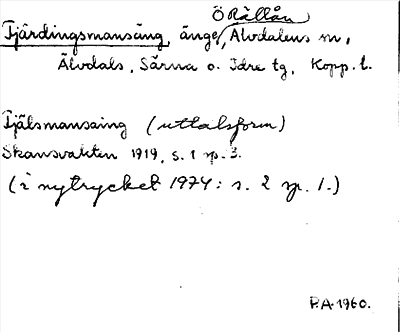 Ö Rällån
Fjärdingsmansäng, änge, Älvdalens sn,
Älvdals, Särna o. Idre tg, Kopp. l.
Fjälsmansaing (uttalsform)
Skansvakten 1919, s. 1 sp. 3.
(i nytrycket 1974: s. 2 sp. 1.)
P.A. 1960.